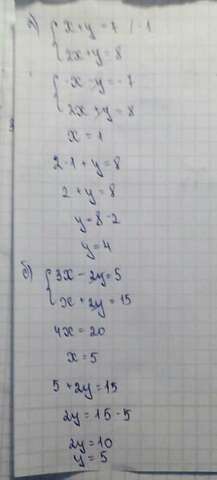 а) { x+y=7 / -1
2x+y=8
{ -x-y=-7
2x+y=8
x=1
2·1+y=8
2+y=8
y=8-2
y=4
б) { 3x-2y=5
x+2y=15
4x=20
x=5
5+2y=15
2y=15-5
2y=10
y=5